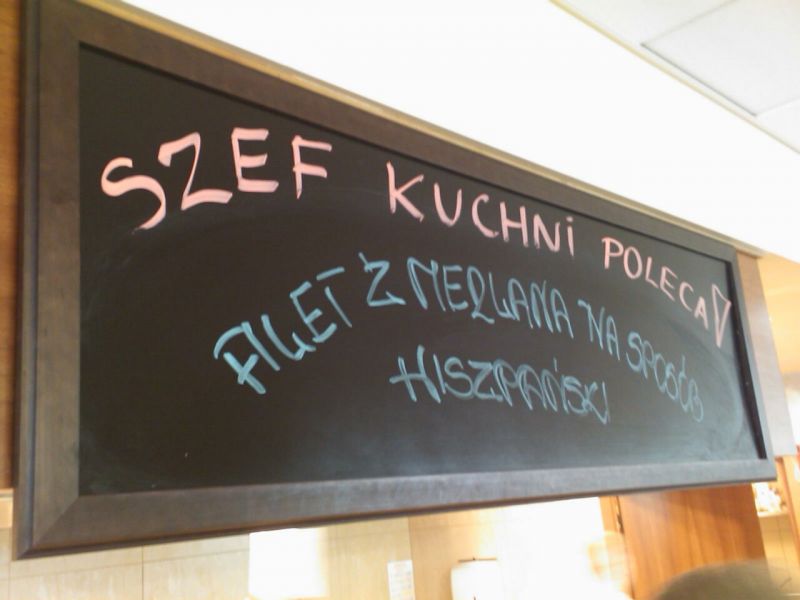 SZEF KUCHNI POLECA!
FILET Z MERLANA NA SPOSÓB
HISZPAŃSKI